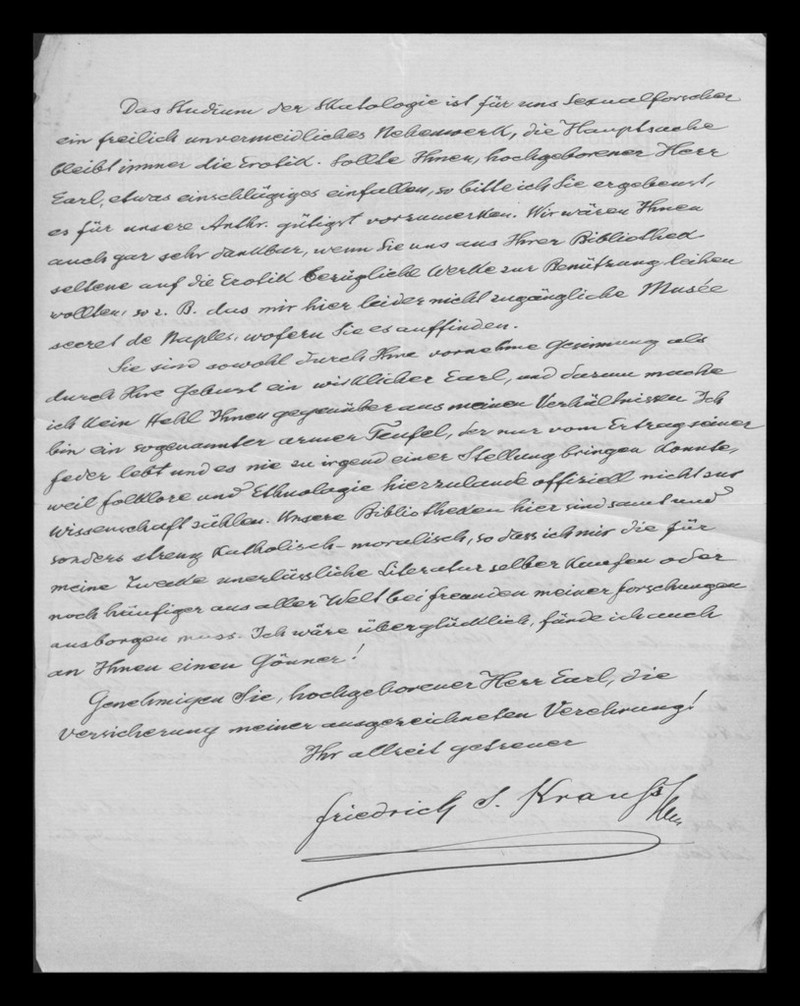 Das Studium der Skatologie ist für uns Sexualforscher
ein freilich unvermeidliches Nebenwerk, die Hauptsache
bleibt immer die Erotik. Sollte Ihnen, hochgeborener Herr
Earl, etwas einschlägiges einfallen, so bitte ich Sie ergebenst,
es für unsere Anthr. gütigst vorzumerken. Wir wären Ihnen
auch gar sehr dankbar, wenn Sie uns aus Ihrer Bibliothek
seltene auf die Erotik bezügliche Werke zur Benützung leihen
wollten, so z. B. das mir hier leider nicht zugängliche Musée
secret de Naples, wofern Sie es auffinden.
Sie sind sowohl durch Ihre vornehme Gesinnung als
durch Ihre Geburt ein wirklicher Earl, und darum mache
ich kein Hehl Ihnen gegenüber aus meinen Verhältnissen. Ich
bin ein sogenannter armer Teufel, der nur vom Ertrag seiner
Feder lebt und es nie zu irgend einer Stellung bringen konnte,
weil Folklore und Ethnologie hierzulande offiziell nicht zur
Wissenschaft zählen. Unsere Bibliotheken hier sind samt und
sonders streng katholisch-moralisch, so dass ich mir die für
meine Zwecke unerlässliche Literatur selber kaufen oder
noch häufiger aus aller Welt bei Freunden meiner Forschungen
ausborgen muss. Ich wäre überglücklich, fände ich auch
an Ihnen einen Gönner!
Genehmigen Sie, hochgeborener Herr Earl, die
Versicherung meiner ausgezeichneten Verehrung!
Ihr allzeit getreuer
Friedrich S. Krauss